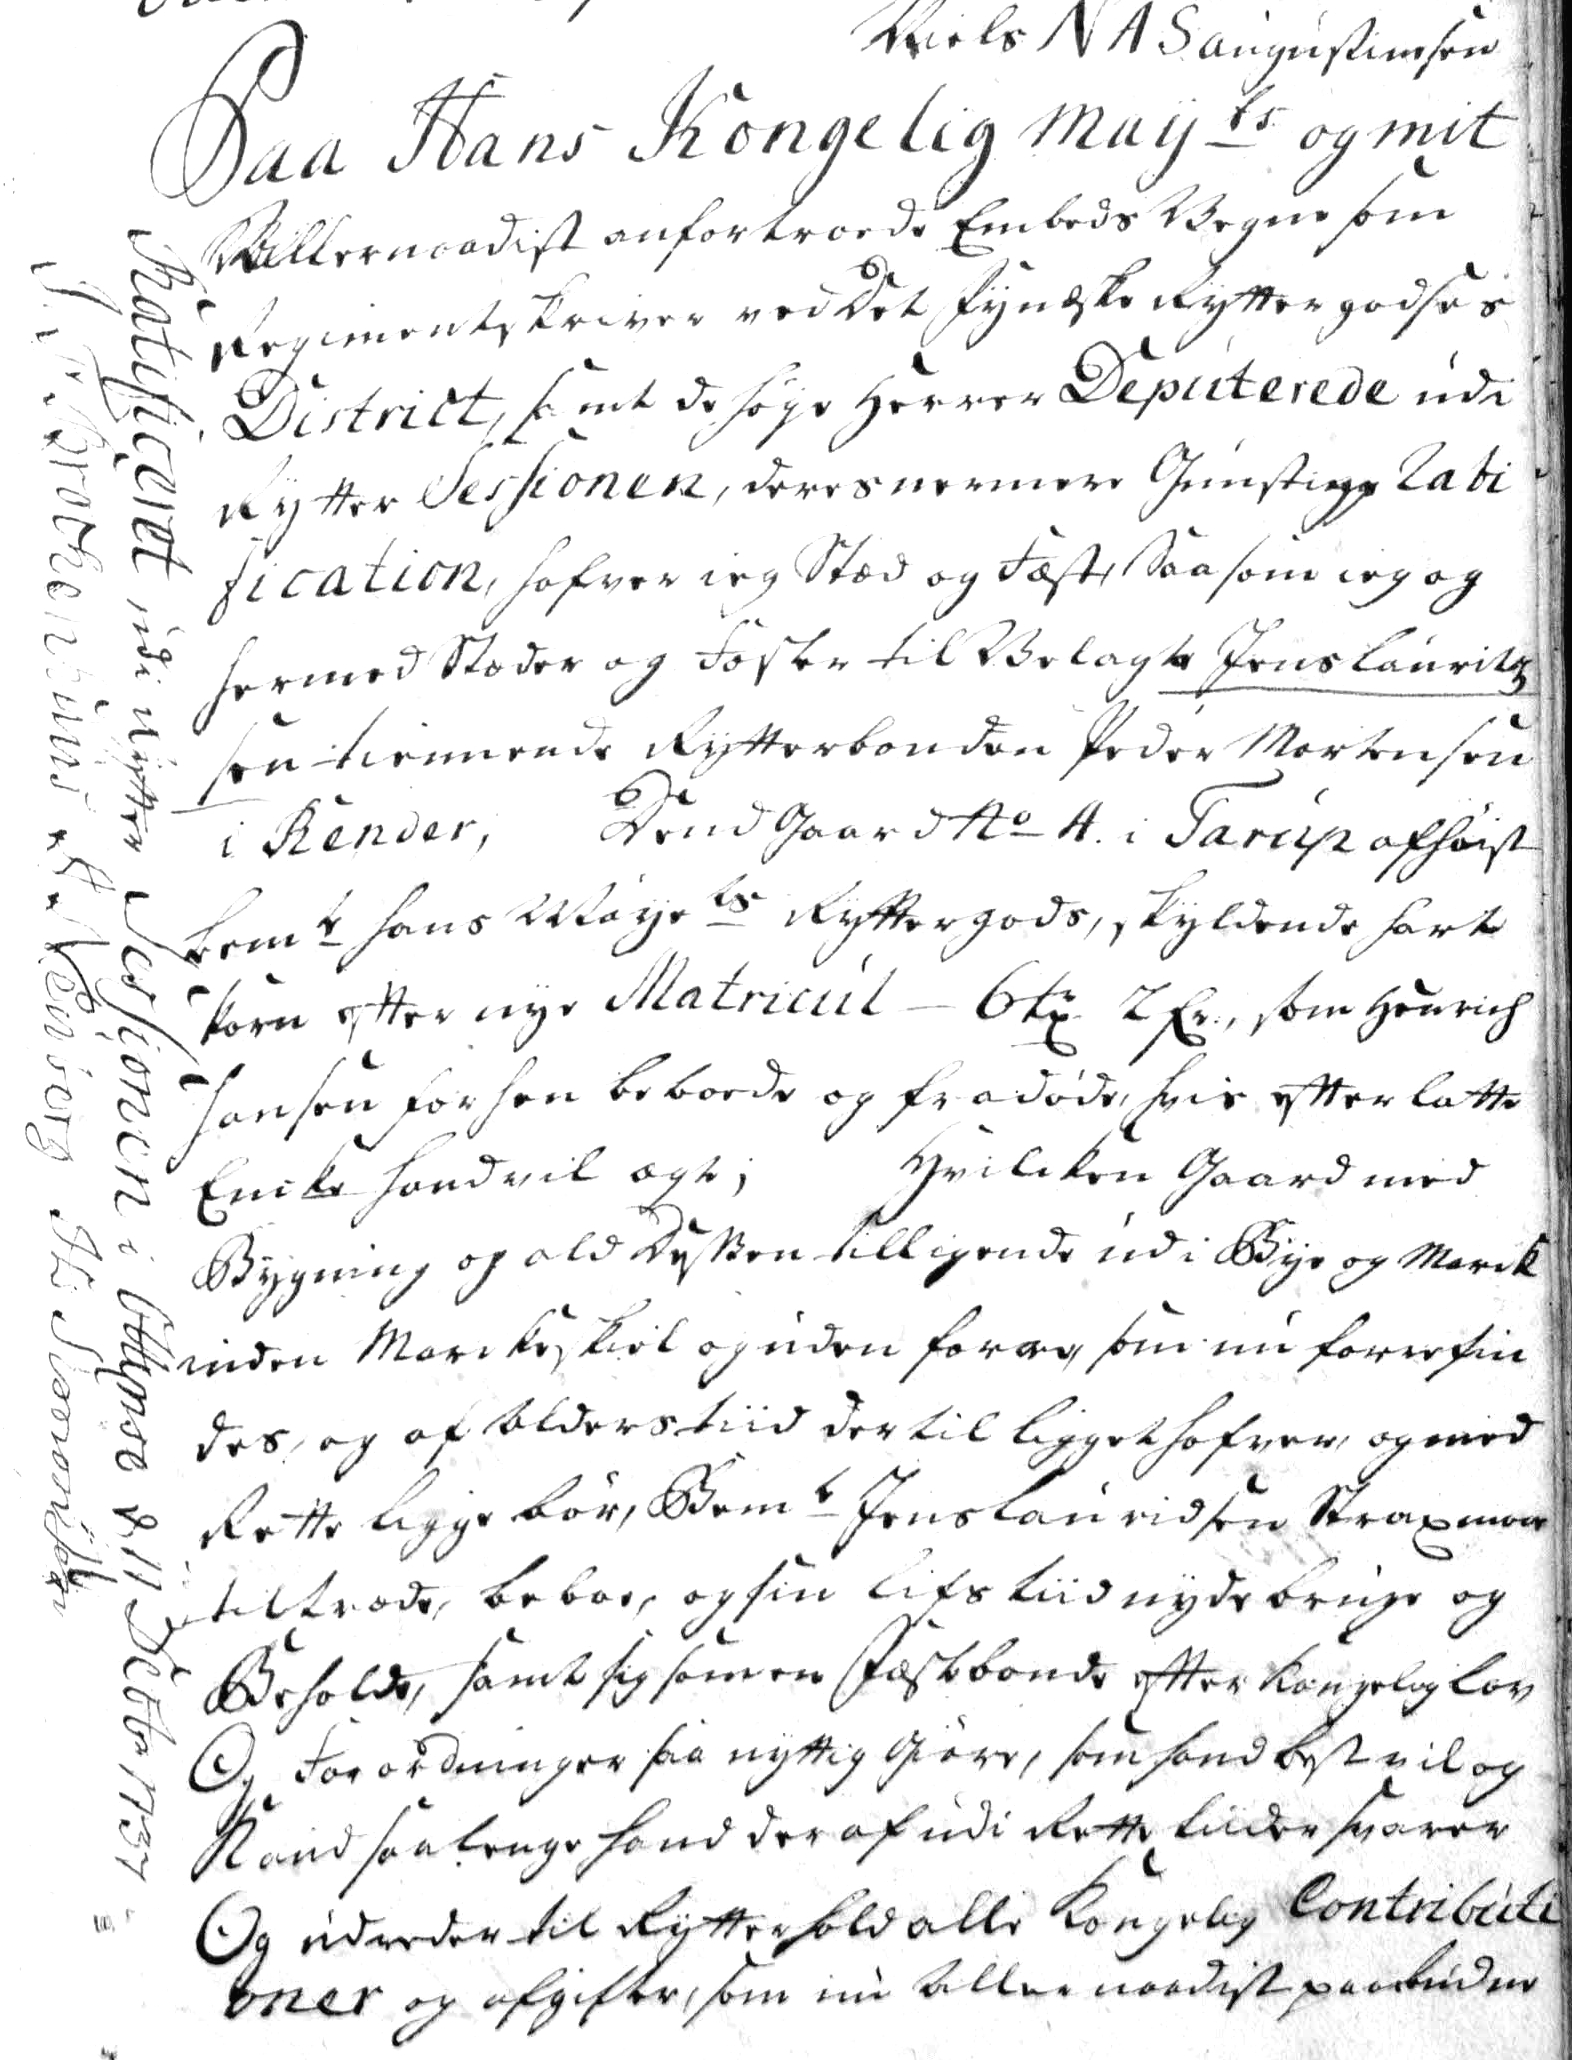 Niels N A S augustinsen
Paa Hans Kongelig May ts og mit
Allernaadist anfortroede Embeds Vegne som
Regimentskriver ved Det Fynske Ryttergodses
District, samt de höye Herrer Deputerede udi
Rytter Sessionen, deres nermere Gunstige Rati
fication, hafver ieg Sted og Fæst, saa som ieg og
hermed Steder og Fæster til Velagte Jens Lauritz
sen tienende Rytterbonden Peder Mortensen
i Render, Dend Gaard No 4. i Tarup afhöist
bem te hans Maye ts Ryttergods, skyldende hart
korn efter nye Matricul - 6 tr 2 fr., som Henrich
Hansen forhen beboede og fradöde, hvis efterlatte
Encke hand vil ægte; Hvilcken Gaard med
Bygning og ald Dessen tilligende udi Bye og Marck
inden Marckeskiel og uden for, som nu forrefin
des, og af alders tiid der til ligget hafver, og med
Rette ligge bör, Bem te Jens Lauridsen Strax maa
tiltræde, beboe, og sin lifs tiid nyde bruge og
Beholde, samt sig som en Fæstebonde efter Kongelig lov
Og Forordninger saa nyttig Giöre, som hand best vil og
Kand saa lenge hand der af udi Rette tiider svarer
Og udreder til Rytterhold alle Kongelig Contributi
oner og afgifter, som nu allernaadist paabuden
Ratificeret udi Rytter Sessionen i Odense d 11 Octbr 1737